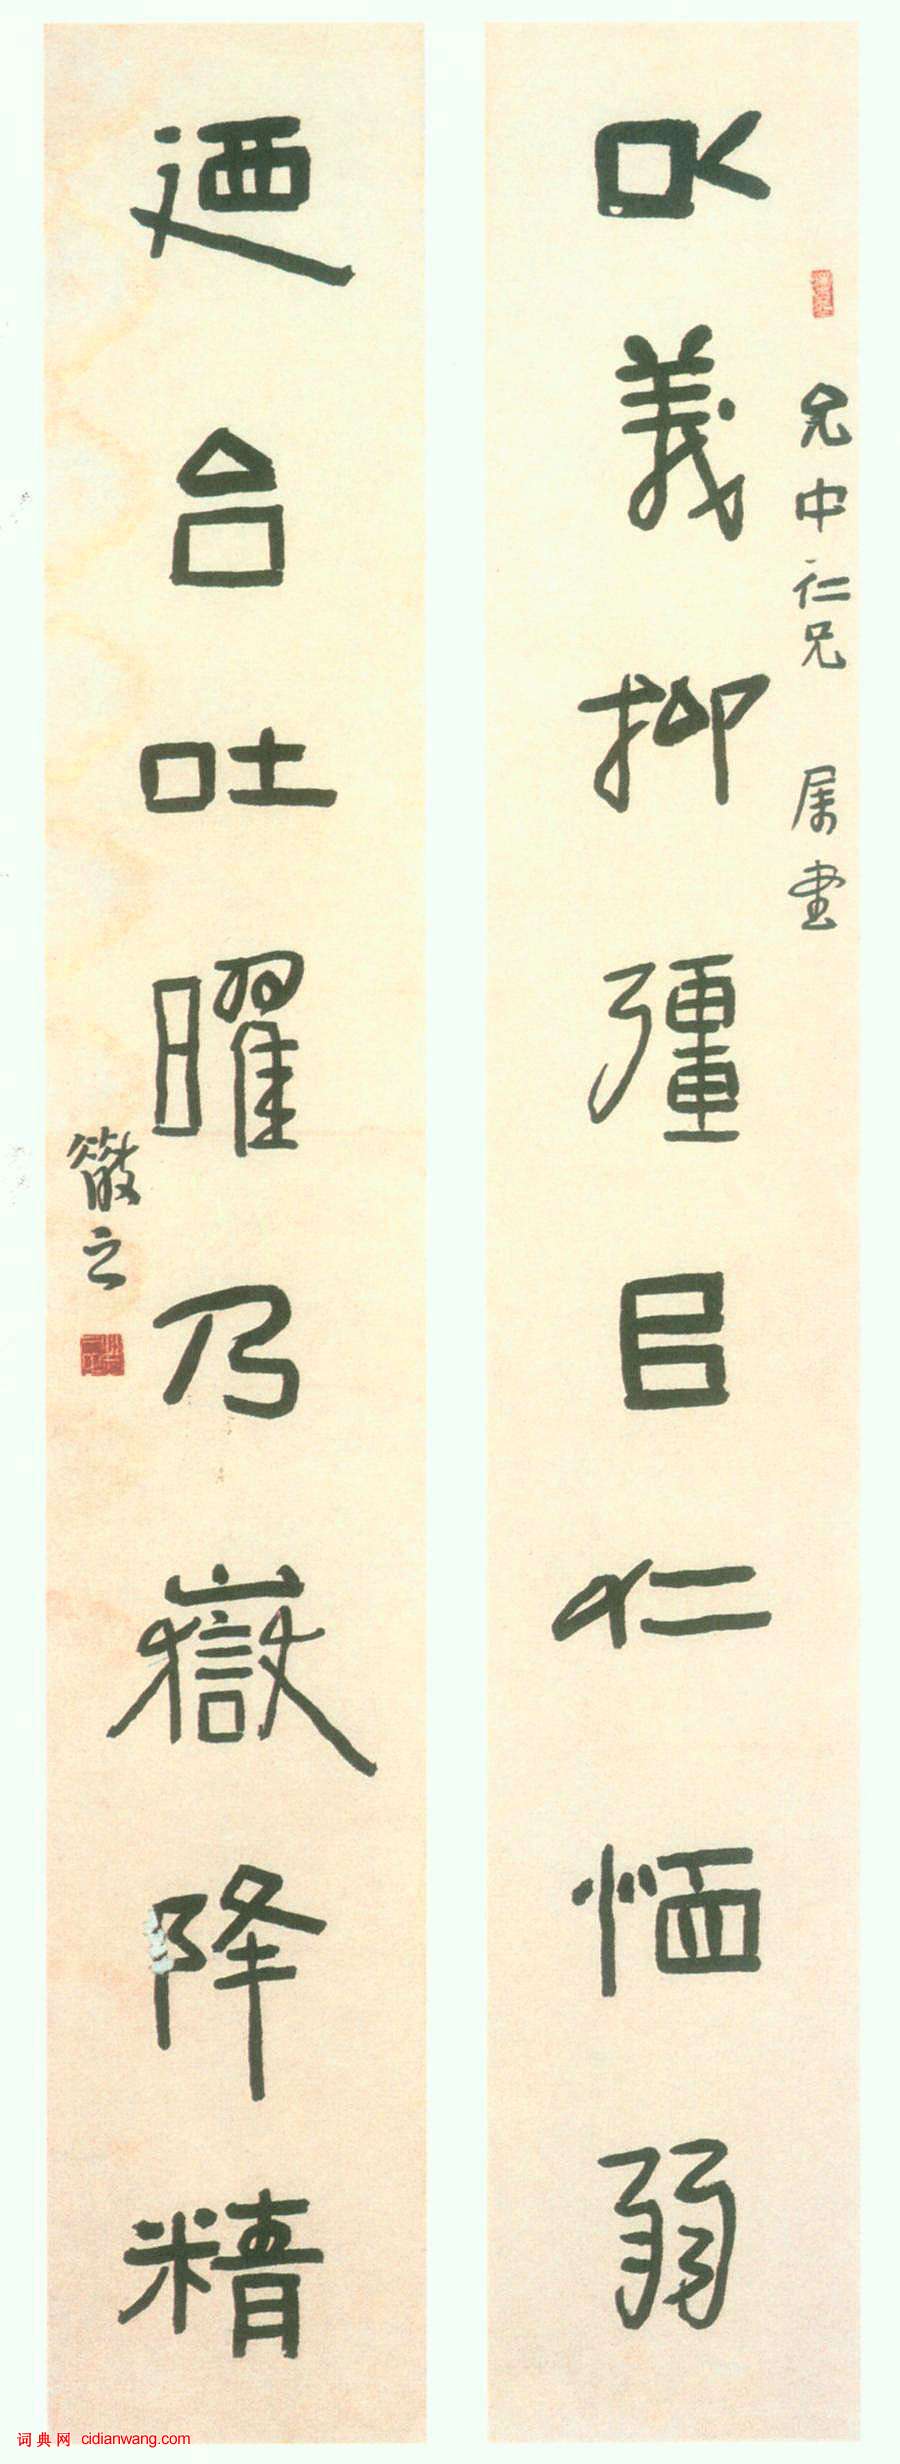 允中仁兄 属書
以義抑彊㠯仁恤弱
迺台吐曜乃嶽降精
散之
词典网 cidianwang.com